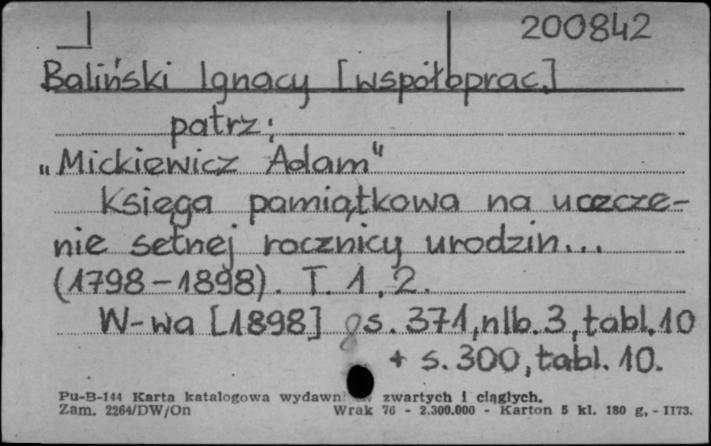 200842
Baliński Ignacy [współoprac.]
patrz:
"Mickiewicz Adam"
Księga pamiątkowa na uczcze-
nie setnej rocznicy urodzin...
(1798-1898). T. 1, 2.
W-wa [1898] 8 s. 371, nlb. 3, tabl. 10
+ s. 300, tabl. 10.
Pu-B-144 Karta katalogowa wydawn zwartych i ciągłych.
Zam. 2264/DW/On Wrak 76 - 2.300.000 - Karton 5 kl. 180 g, - II73.